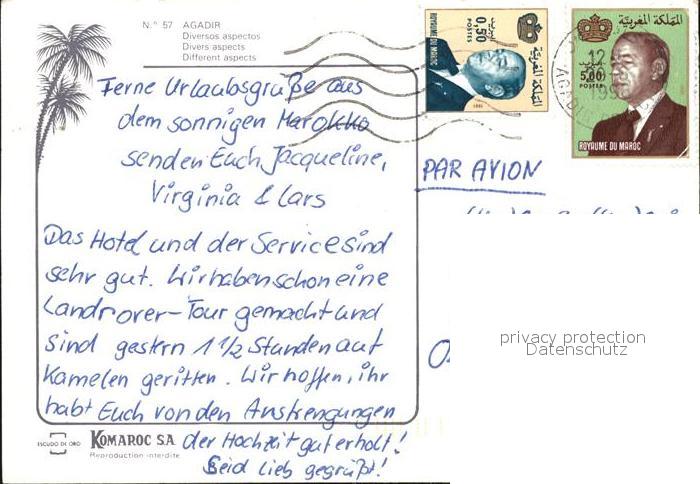 N.° 57 AGADIR
Diversos aspectos
Divers aspects
Different aspects
Ferne Urlaubsgrüße aus
dem sonnigen Marokko
senden Euch Jacqueline,
Virginia & Lars
Das Hotel und der Service sind
sehr gut. Wir haben schon eine
Landrover-Tour gemacht und
sind gestern 1 1/2 Stunden auf
Kamelen geritten. Wir hoffen, ihr
habt Euch von den Anstrengungen
der Hochzeit gut erholt!
Seid lieb gegrüßt!
ESCUDO DE ORO
KOMAROC S.A.
Reproduction interdite
ROYAUME DU MAROC
0,50
POSTES
المملكة المغربية
1981
المملكة المغربية
5,00
POSTES
ROYAUME DU MAROC
12
PAR AVION
privacy protection
Datenschutz